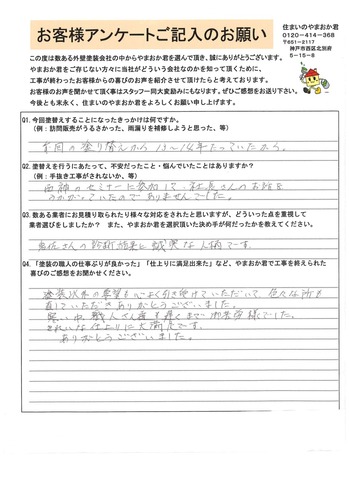 お客様アンケートご記入のお願い
住まいのやまおか君
0120-414-368
〒651-2117
神戸市西区北別府
5-15-8
この度は数ある外壁塗装会社の中からやまおか君を選んで頂き、誠にありがとうございます。
やまおか君をご存じない方々に当社がどういう会社なのかを知って頂くために、
工事が終わったお客様からの喜びのお声を紹介させて頂けたらと考えております。
お客様のお声を聞かせて頂く事はスタッフ一同大変励みにもなります。ぜひご感想をお送り下さい。
今後とも末永く、住まいのやまおか君をよろしくお願い申し上げます。
Q1.今回塗替えすることになったきっかけは何ですか。
(例:訪問販売がうるさかった、雨漏りを補修しようと思った、等)
前回の塗り替えから13〜14年たっていたから。
Q2.塗替えを行うにあたって、不安だったこと・悩んでいたことはありますか?
(例:手抜き工事がされないか、等)
西神のセミナーに参加して、社長さんのお話を
うかがっていたのでありませんでした。
Q3.数ある業者にお見積り取られたり様々な対応をされたと思いますが、どういった点を重視して
業者選びをしましたか? また、やまおか君を選択頂いた決め手が何だったかを教えてください。
さんの診断結果と誠実な人柄です。
Q4.「塗装の職人の仕事ぶりが良かった」「仕上りに満足出来た」など、やまおか君で工事を終えられた
喜びのご感想をお聞かせください。
塗装以外の要望も心よく引き受けていただいて、色々な所を
直していただきありがとうございました。
寒い中、職人さん達も遅くまでお世話様でした。
きれいな仕上りに大満足です。
ありがとうございました。